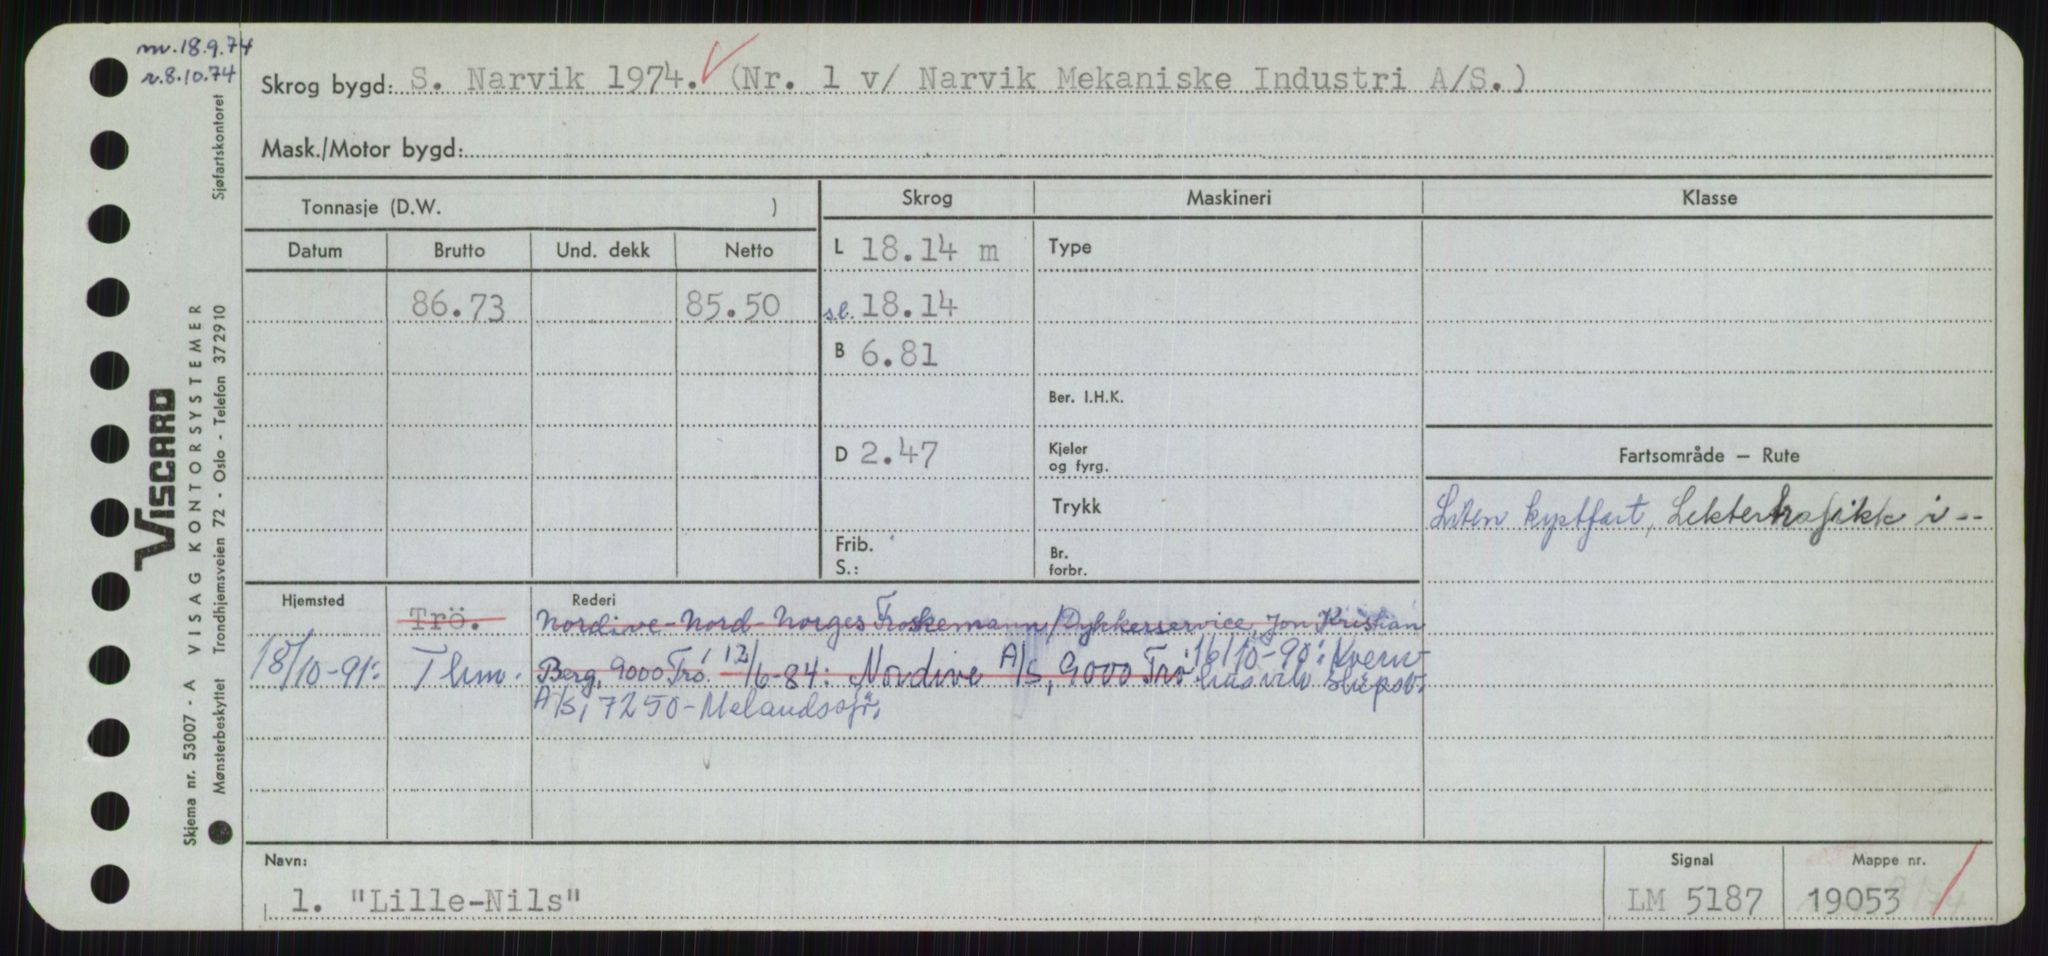 m.18.9.74
r.8.10.74
Skrog bygd: S. Narvik 1974. (Nr. 1 v/ Narvik Mekaniske Industri A/S.)
Mask./Motor bygd:
Tonnasje (D.W. )
Skrog
Maskineri
Klasse
Datum Brutto Und. dekk Netto
L 18.14 m
Type
86.73 85.50
s.l. 18.14
B 6.81
Ber. I.H.K.
D 2.47
Kjeler
og fyrg.
Fartsområde – Rute
Trykk
Liten kystfart, Lektertrafikk i --
Frib.
S.:
Br.
forbr.
Hjemsted
Rederi
Trö. Nordive-Nord-Norges Froskemann/Dykkerservice, Jon Kristian
18/10-91: Thm. Berg, 9000 Trö. 12/6-84: Nordive A/S, 9000 Trö 16/10-90: Kvern-
A/S, 7250-Melandssjö,
Navn:
1. "Lille-Nils"
Signal
LM 5187
Mappe nr.
19053
Sjøfartskontoret
VISCARD
VISAG KONTORSYSTEMER
Trondhjemsveien 72 - Oslo - Telefon 372910
Skjema nr. 53007 - A
Mønsterbeskyttet